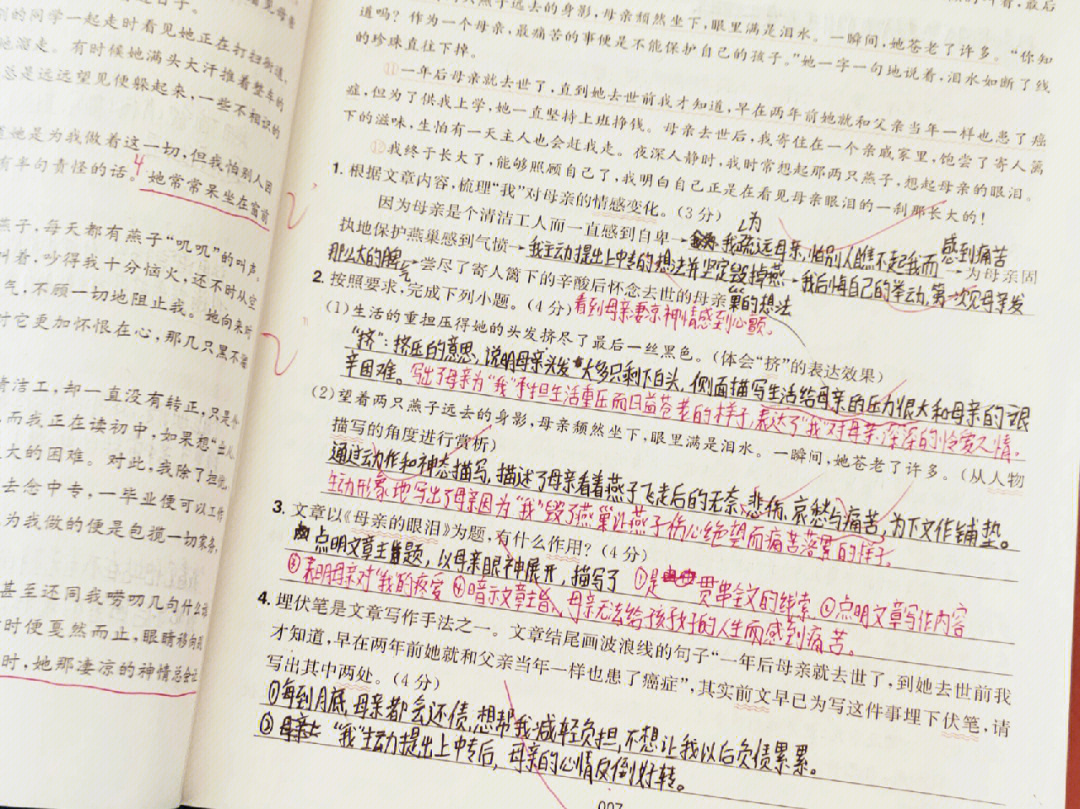 别的同学一起走时看见她正在打扫街道,
地溜走。有时候她满头大汗推着整车的
总是远远望见便躲起来,一些不相识的
她是为我做着这一切,但我怕别人因
有半句责怪的话。4她常常呆坐在窗前
燕子,每天都有燕子“叽叽”的叫声,
叫着,吵得我十分恼火,还不时从空
气,不顾一切地阻止我。她向来
对它更加怀恨在心,那几只黑不溜
清洁工,却一直没有转正,只是
而我正在读初中,如果想“
大的困难。对此,我除了
去念中专,一毕业便可以工作
为我做的便是包揽一切家务,
甚至还同我唠叨几句什么
时便戛然而止,眼睛移向
时,她那凄凉的神情总会让
只燕子远去的身影,母亲颓然坐下,眼里满是泪水。一瞬间,她苍老了许多。“你知
道吗?作为一个母亲,最痛苦的事便是不能保护自己的孩子。”她一字一句地说着,泪水如断了线
的珍珠直往下掉。
⑪一年后母亲就去世了,直到她去世前我才知道,早在两年前她就和父亲当年一样也患了癌
症,但为了供我上学,她一直坚持上班挣钱。母亲去世后,我寄住在一个亲戚家里,饱尝了寄人篱
下的滋味,生怕有一天主人也会赶我走。夜深人静时,我时常想起那两只燕子,想起母亲的眼泪。
⑫我终于长大了,能够照顾自己了,我明白自己正是在看见母亲眼泪的一刹那长大的!
1. 根据文章内容,梳理“我”对母亲的情感变化。(3分)
因为母亲是个清洁工人而一直感到自卑→为我疏远母亲,怕别人瞧不起我而感到痛苦→为母亲固
执地保护燕巢感到气愤→我主动提出上中专的想法并坚定毁掉燕巢的想法→我后悔自己的举动,第一次见母亲发
那么大的脾气→尝尽了寄人篱下的辛酸后怀念去世的母亲
2. 按照要求,完成下列小题。(4分)看到母亲凄凉神情感到心颤。
(1)生活的重担压得她的头发挤尽了最后一丝黑色。(体会“挤”的表达效果)
“挤”:挤压的意思,说明母亲头发大多只剩下白头,侧面描写生活给母亲的压力很大和母亲的艰
辛困难。写出了母亲为“我”承担生活重压而日益苍老的样子,表达了“我”对母亲深深的怜爱之情。
(2)望着两只燕子远去的身影,母亲颓然坐下,眼里满是泪水。一瞬间,她苍老了许多。(从人物
描写的角度进行赏析)
通过动作和神态描写,描述了母亲看着燕子飞走后的无奈,悲伤,哀愁与痛苦,为下文作铺垫。
生动形象地写出了母亲因为“我”毁了燕巢让燕子伤心绝望而痛苦落泪的样子。
3. 文章以《母亲的眼泪》为题,有什么作用?(4分)
点明文章主题,以母亲眼神展开,描写了 ①是贯串全文的线索 ②点明文章写作内容
③表明母亲对“我”的疼爱 ④暗示文章主旨,母亲无法给孩子好的人生而感到痛苦。
4. 埋伏笔是文章写作手法之一。文章结尾画波浪线的句子“一年后母亲就去世了,到她去世前我
才知道,早在两年前她就和父亲当年一样也患了癌症”,其实前文早已为写这件事埋下伏笔,请
写出其中两处。(4分)
①每到月底,母亲都会还债,想帮我减轻负担,不想让我以后负债累累。
②“我”主动提出上中专后,母亲的心情反倒好转。
007